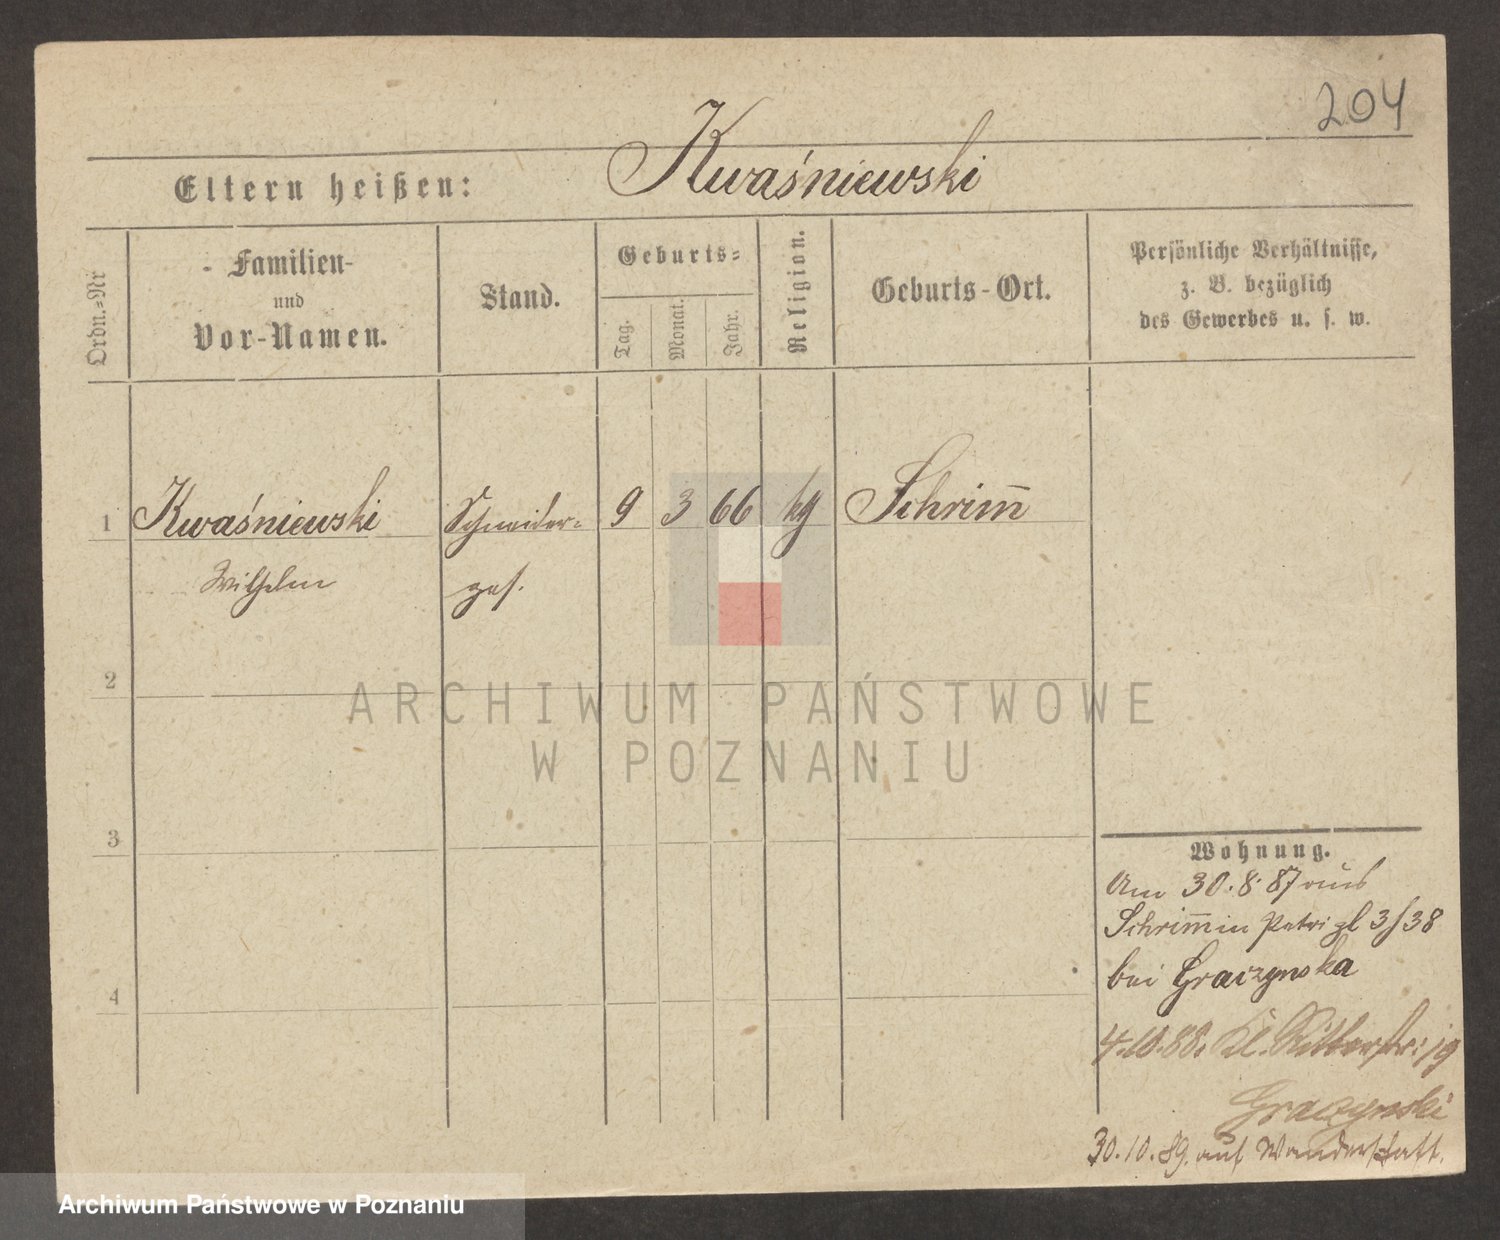 204
Eltern heißen: Kwaśniewski
Ordn.-Nr
Familien-
und
Vor-Namen.
Stand.
Geburts-
Tag.
Monat.
Jahr.
Religion.
Geburts-Ort.
Persönliche Verhältnisse,
z. B. bezüglich
des Gewerbes u. s. w.
1 Kwaśniewski Schneider- 9 3 66 kg Schrim̄
Wilhelm ges.
2
ARCHIWUM PAŃSTWOWE
W POZNANIU
3
4
Wohnung.
Am 30.8.87 aus
Schrim̄ in Petri pl 3/38
bei Graczynska
4.10.88. Kl. Ritterstr. 19
Graczynski
30.10.89. auf Wanderschaft.
Archiwum Państwowe w Poznaniu